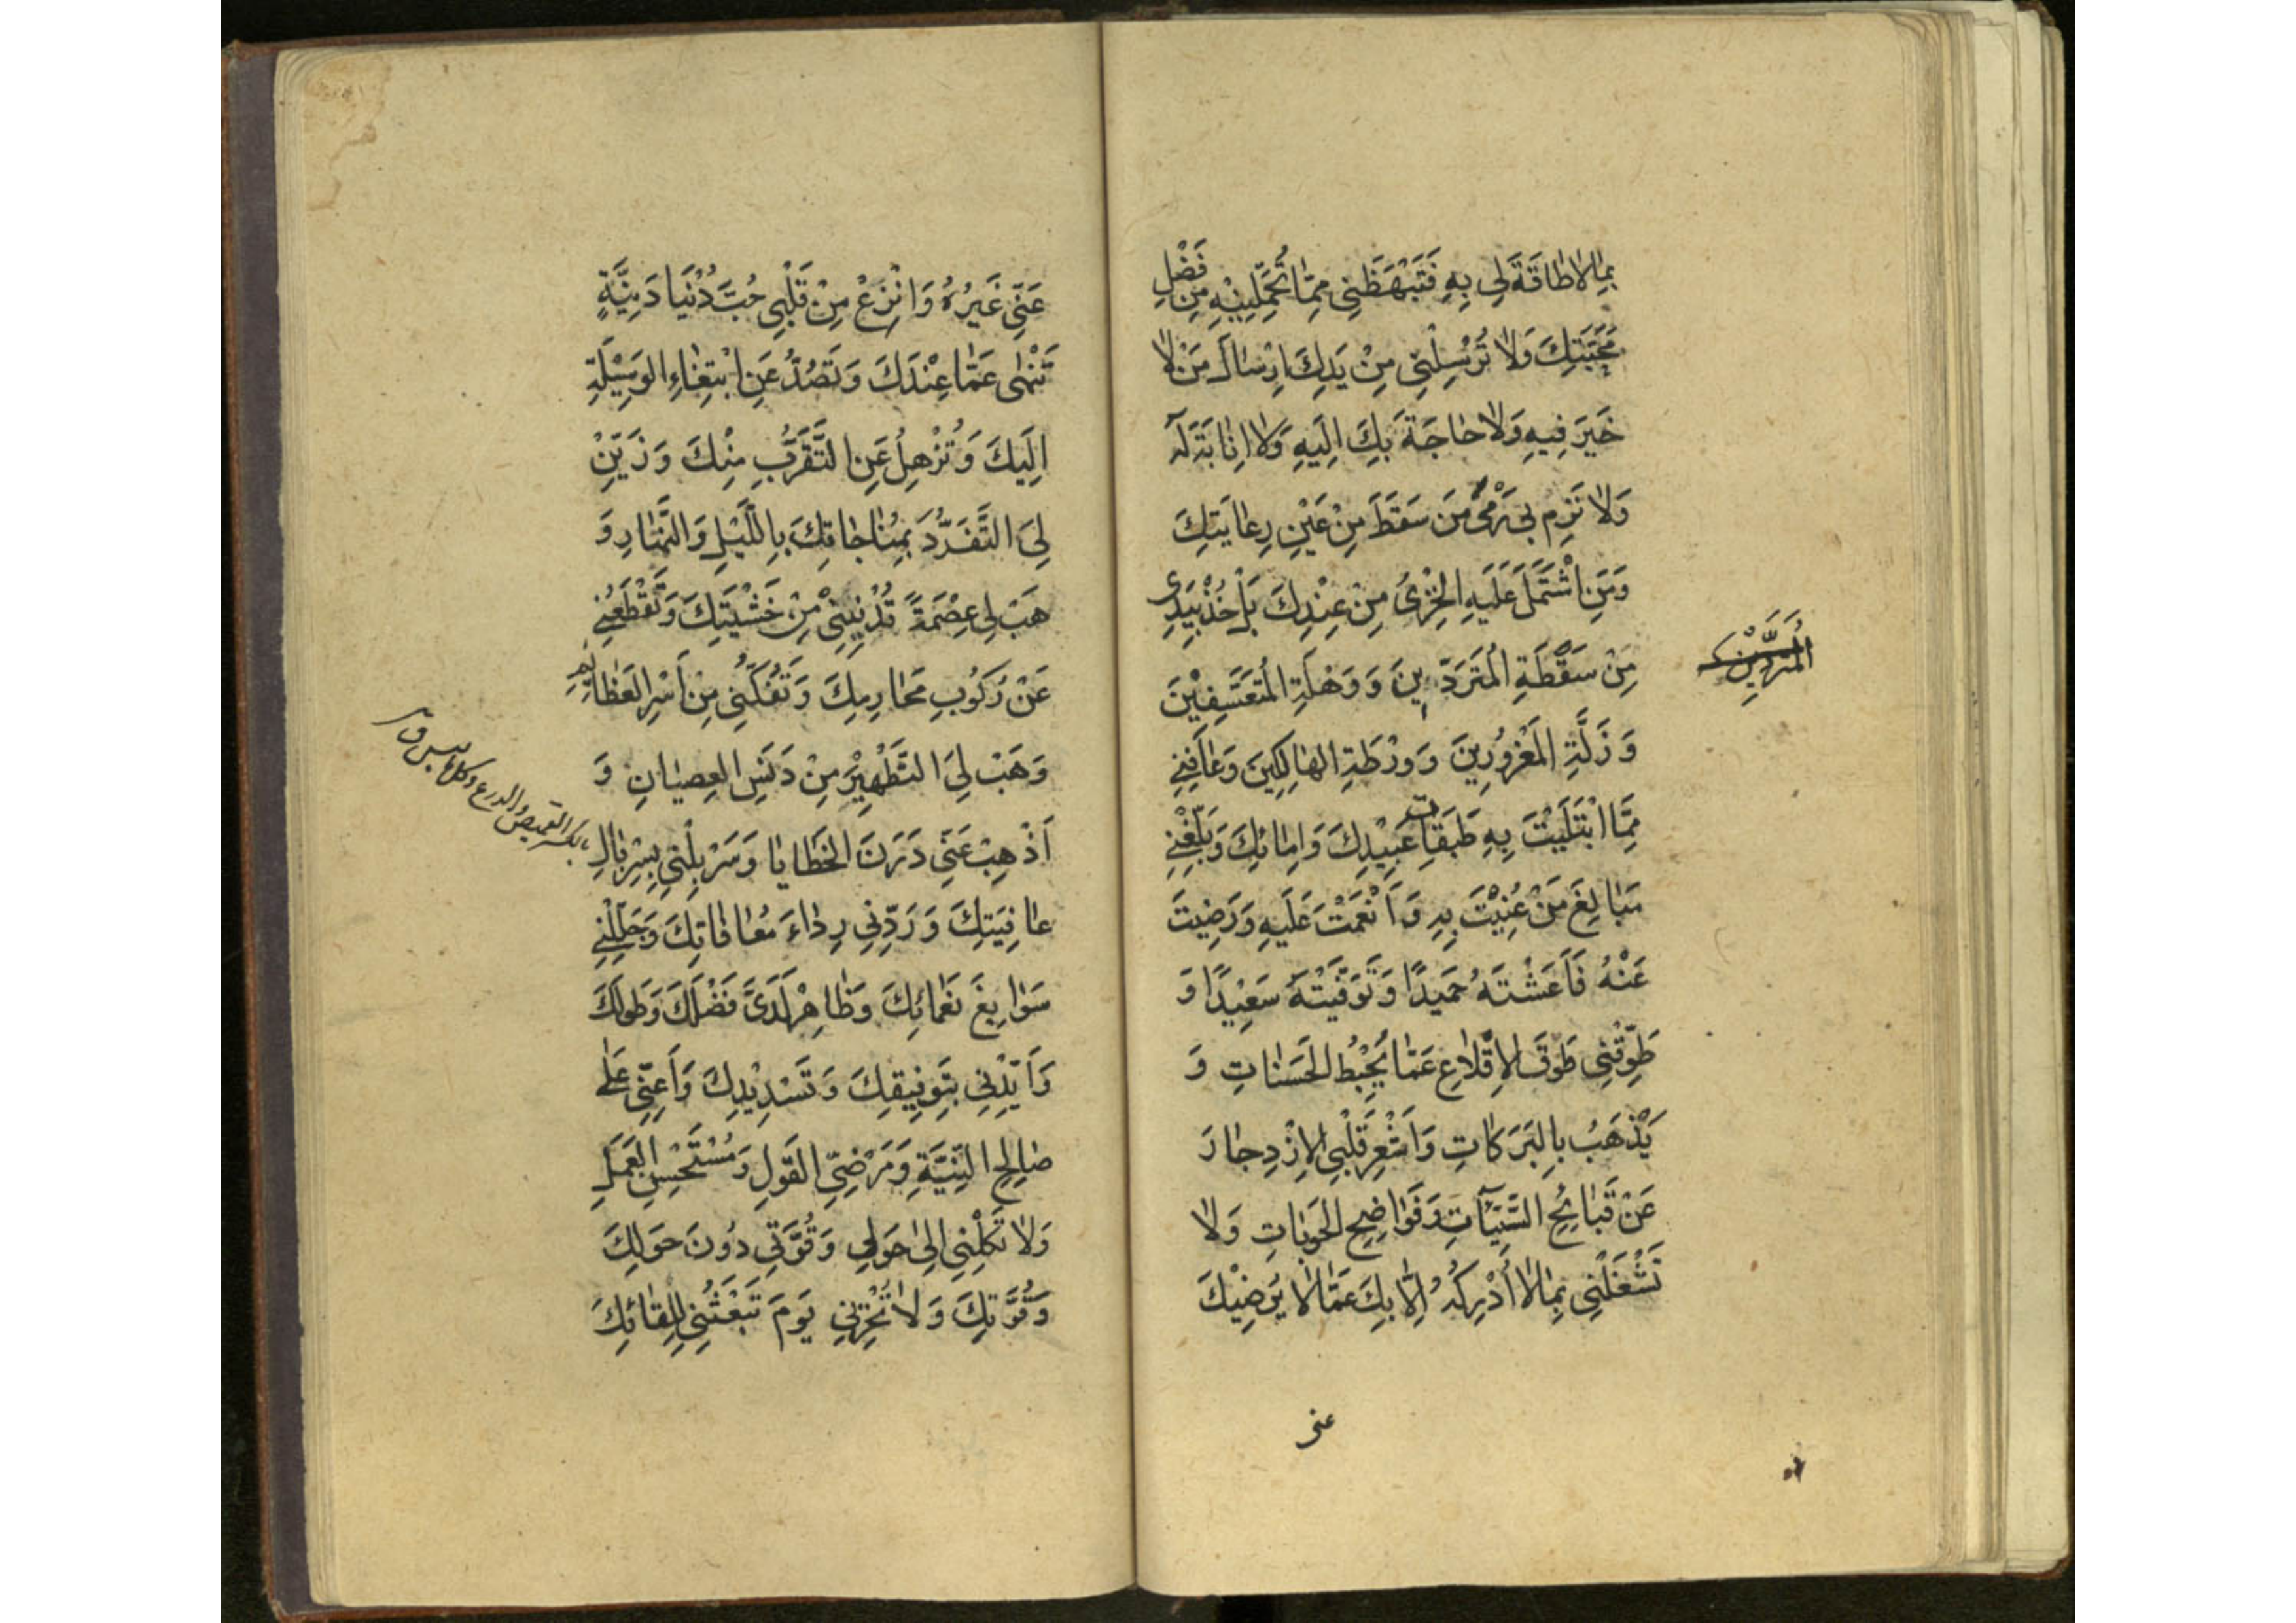 بِمٰا لاٰ طٰاقَةَ لِی بِهِ فَتَبْهَظَنِی مِمّٰا تُحَمِّلِینِهِ مِنْ فَضْلِ
مَحَبَّتِكَ وَلاٰ تُرْسِلْنِی مِنْ یَدِكَ اِرْسٰالَ مَنْ لاٰ
خَیرَ فِیهِ وَلاٰ حٰاجَةَ بِكَ اِلَیهِ وَلاٰ اِنٰابَةَ لَهُ
وَلاٰ تَرْمِ بِی رَمْیَ مَنْ سَقَطَ مِنْ عَیْنِ رِعٰایَتِكَ
وَمَنِ اشْتَمَلَ عَلَیهِ الْخِزْیُ مِنْ عِنْدِكَ بَلْ خُذْ بِیَدِی
مِنْ سَقْطَةِ الْمُتَرَدِّینَ وَ وَهْلَةِ الْمُتَعَسِّفِیْنَ
وَ زَلَّةِ الْمَغْرُورِینَ وَ وَرْطَةِ الهٰالِكِینَ وَعٰافِنِی
مِمَّا ابْتَلَیْتَ بِهِ طَبَقٰاتِ عَبِیْدِكَ وَ اِمٰائِكَ وَ بَلِّغْنِی
مَبٰالِغَ مَنْ عُنِیْتَ بِهِ وَ اَنْعَمْتَ عَلَیهِ وَ رَضِیتَ
عَنْهُ فَاَعَشْتَهُ حَمِیدًا وَ تَوَفَّیْتَهُ سَعِیْدًا وَ
طَوِّقْنِی طَوقَ الاِقْلاٰعِ عَمّٰا یُحْبِطُ الحَسَنٰاتِ وَ
یَذْهَبُ بِالبَرَكٰاتِ وَ اَشْعِرْ قَلْبِی الاِزْدِجٰارَ
عَنْ قَبٰائِحِ السَّیِّآتِ وَ فَوٰاضِحِ الحَوبٰاتِ وَلاٰ
تَشْغَلْنِی بِمٰا لاٰ اُدْرِكُهُ اِلاّٰ بِكَ عَمّٰا لاٰ یُرْضِیْكَ
عنی
المُتَرَدِّیْنَ
عَنِّی غَیرُهُ وَ انْزِعْ مِنْ قَلْبِی حُبَّ دُنْیَا دَنِیَّةٍ
تَنْهٰی عَمّٰا عِنْدَكَ وَ تَصُدُّ عَنِ ابْتِغٰاءِ الوَسِیْلَةِ
اِلَیكَ وَ تُذْهِلُ عَنِ التَّقَرُّبِ مِنْكَ وَ زَیِّنْ
لِیَ التَّفَرُّدَ بِمُنٰاجٰاتِكَ بِاللَّیْلِ وَ النَّهٰارِ وَ
هَبْ لِی عِصْمَةً تُدْنِیْنِی مِنْ خَشْیَتِكَ وَ تَقْطَعُنِی
عَنْ رُكُوبِ مَحٰارِمِكَ وَ تَفُكُّنِی مِنْ اَسْرِ العَظٰائِمِ
وَهَبْ لِیَ التَّطْهِیْرَ مِنْ دَنَسِ العِصیٰانِ وَ
اَذْهِبْ عَنِّی دَرَنَ الخَطٰایٰا وَ سَرْبِلْنِی بِسِرْبٰالِ
عٰافِیَتِكَ وَ رَدِّنِی رِدٰاءَ مُعٰافٰاتِكَ وَ جَلِّلْنِی
سَوٰابِغَ نَعْمٰائِكَ وَ ظٰاهِرْ لَدَیَّ فَضْلَكَ وَ طَولَكَ
وَ اَیِّدْنِی بِتَوفِیقِكَ وَ تَسْدِیْدِكَ وَ اَعِنِّی عَلٰی
صٰالِحِ النِّیَّةِ وَ مَرْضِیِّ القَولِ وَ مُسْتَحْسَنِ العَمَلِ
وَلاٰ تَكِلْنِی اِلیٰ حَولِی وَ قُوَّتِی دُونَ حَولِكَ
وَ قُوَّتِكَ وَلاٰ تُخْزِنِی یَومَ تَبْعَثُنِی لِلِقٰائِكَ
بكسر القمیص والدرع وكل ما یلبس ق